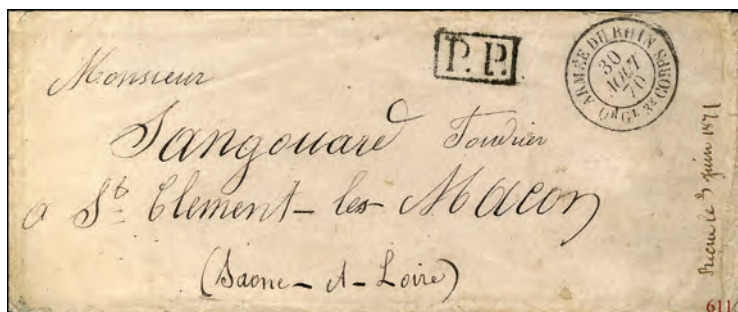 P.P.
ARMÉE DU RHIN
30
AOUT
70
Qr Gl 3e CORPS
Monsieur
Sangouard
a St Clement-les-Macon
(Saone-et-Loire)
le 3 juin 1871
611